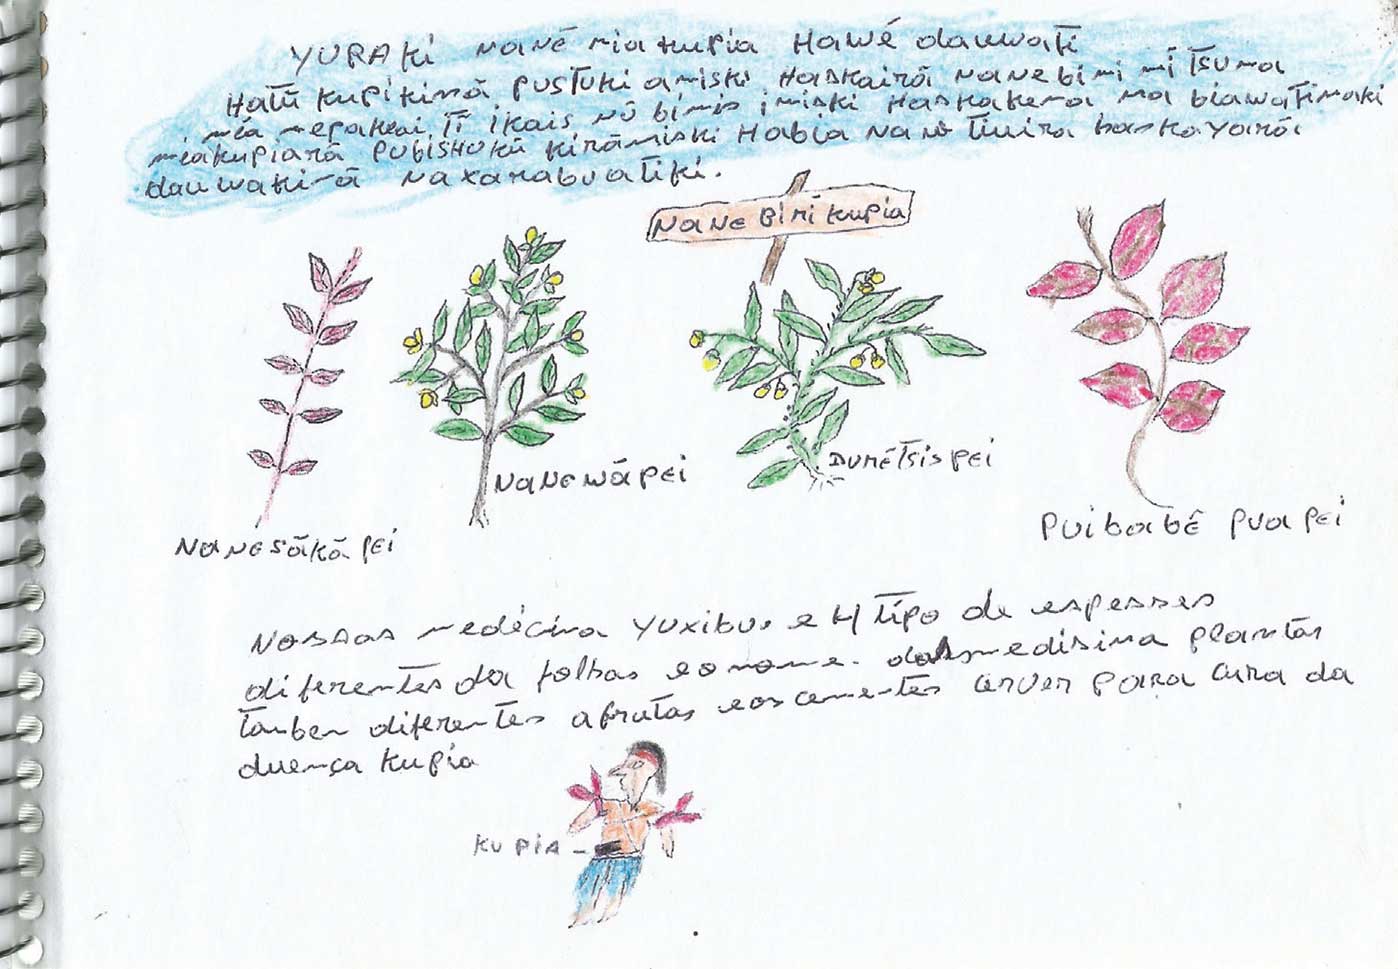 YURAKI nanē mia kupia Hawē dauwati
Hatũ kupikinã pustuki amiski Haskairã nanebimi mi tsuma
mia mepakeai, Tĩ ikais nũ bimis imiski Haskakena ma biawatimaki
miakupiarã pubishukũ kirãmiski Habia nane Tinira baskayarã
dauwakinã naxarabuatiki.
Nane Bimi kupia
Nanesãkã pei
Nanewã pei
Dumētsis pei
Puibabē pua pei
Nossas medécina yuxibu, e 4 tipo de espesses
diferentes da folhas eo nome. das medisina plantas
tanben diferentes a frutas eos cementes cerver para cura da
duença kupia
KUPIA -